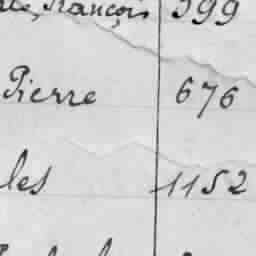 François 599
Pierre 676
les 1152